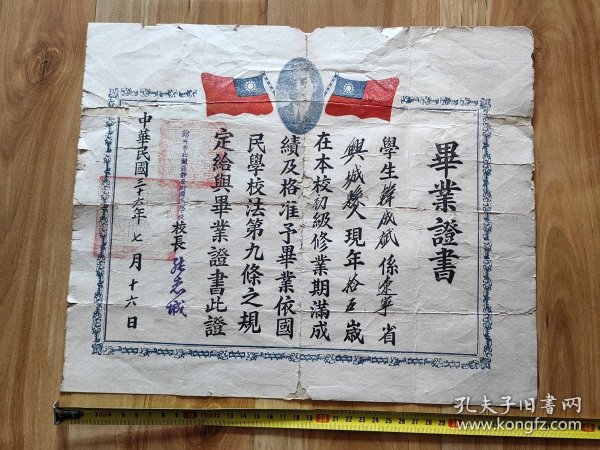 畢業證書
學生 成斌 係遼寧省
興城縣人現年拾五歲
在本校初級修業期滿成
績及格准予畢業依國
民學校法第九條之規
定給與畢業證書此證
校長
中華民國三十六年七月十六日
孔夫子旧书网
www.kongfz.com